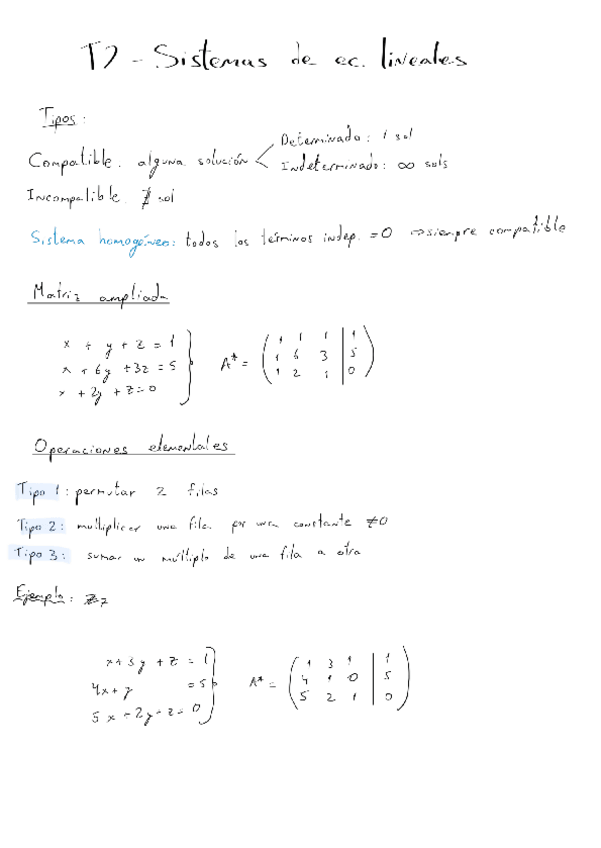 T2 - Sistemas de ec. lineales
Tipos:
Compatible. alguna solución < Determinado: 1 sol
Indeterminado: ∞ sols
Incompatible. ∄ sol
Sistema homogéneo: todos los términos indep. = 0 ⇒ siempre compatible
Matriz ampliada
x + y + z = 1
x + 6y + 3z = 5
x + 2y + z = 0
A* = ( 1 1 1 | 1
1 6 3 | 5
1 2 1 | 0 )
Operaciones elementales
Tipo 1: permutar 2 filas
Tipo 2: multiplicar una fila por una constante ≠0
Tipo 3: sumar un múltiplo de una fila a otra
Ejemplo:
x + 3y + z = 1
4x + y = 5
5x + 2y + z = 0
A* = ( 1 3 1 | 1
4 1 0 | 5
5 2 1 | 0 )